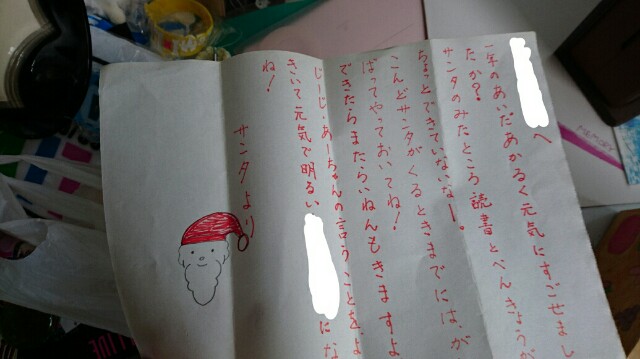 へ
一年のあいだあかるく元気にすごせまし
たか?
サンタのみたところ読書とべんきょうが
ちょっとできていないなー。
こんどサンタがくるときまでには、が
ばってやっておいてね!
できたらまたらいねんもきますよ
じーじ・あーちゃんの言うことをよ
きいて元気で明るい にな
ね!
サンタより